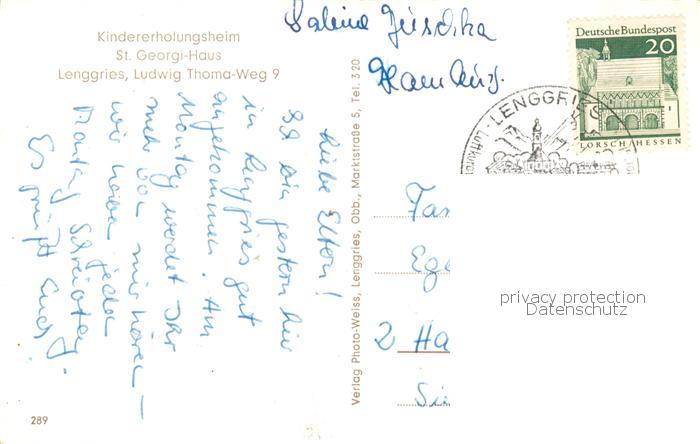 Kindererholungsheim
St. Georgi-Haus
Lenggries, Ludwig Thoma-Weg 9
Liebe Eltern!
bin gestern hier
in Lenggries gut
angekommen. Am
Montag werdet Ihr
mehr von mir hören –
wir haben jeden
Montag Schreibtag.
Es grüßt Euch
289
Verlag Photo-Weiss, Lenggries, Obb., Marktstraße 5, Tel. 3 20
Sabine
Hamburg.
Deutsche Bundespost
20
LORSCH/HESSEN
LENGGRIES
Luftkurort
Fa
Ege
2 Ha
Si
privacy protection
Datenschutz